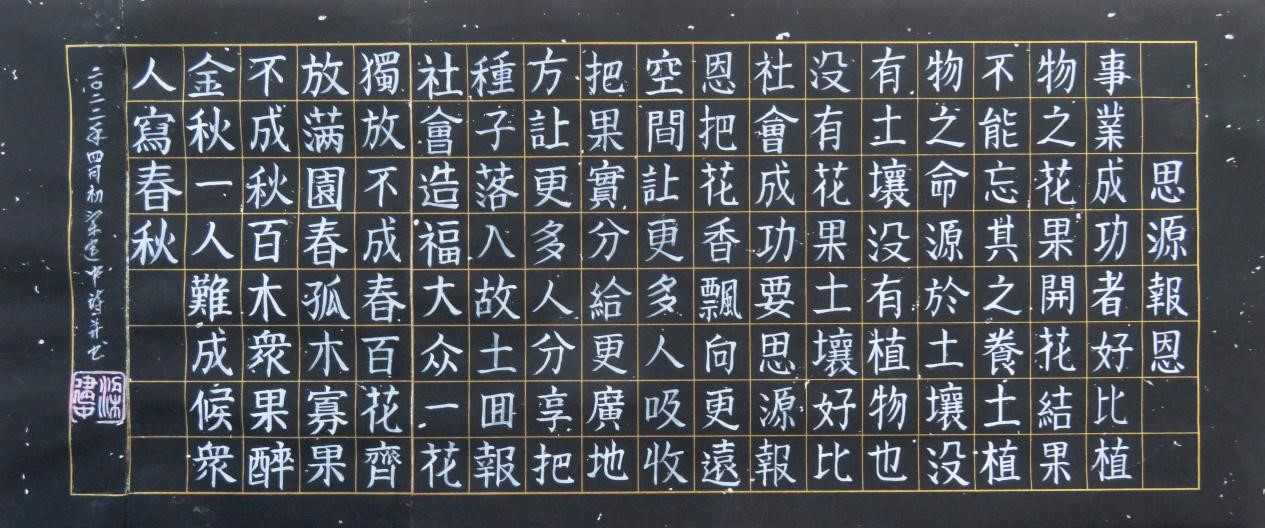 思源報恩
事業成功者好比植
物之花果開花結果
不能忘其之養土植
物之命源於土壤没
有土壤没有植物也
没有花果土壤好比
社會成功要思源報
恩把花香飄向更遠
空間让更多人吸收
把果實分給更廣地
方让更多人分享把
種子落入故土囬報
社會造福大众一花
獨放不成春百花齊
放满園春孤木寡果
不成秋百木衆果醉
金秋一人難成候衆
人寫春秋
二〇二二年四月初梁建中詩并书